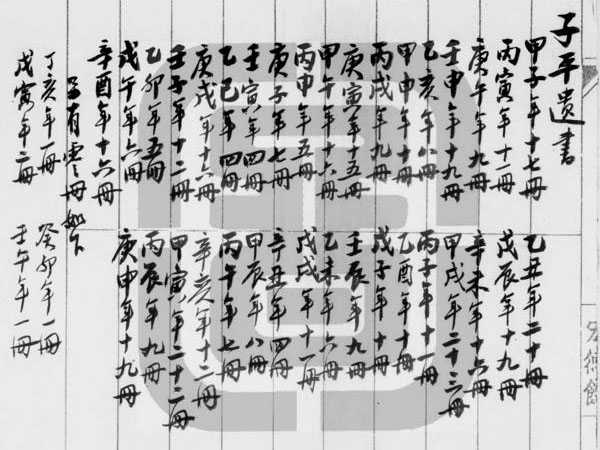 子平遺書
甲子年十七冊 乙丑年二十冊
丙寅年十一冊 戊辰年十九冊
庚午年九冊 辛未年十六冊
壬申年十九冊 甲戌年二十三冊
乙亥年八冊 丙子年十一冊
甲申年十冊 乙酉年十冊
丙戌年九冊 戊子年十冊
庚寅年十五冊 壬辰年九冊
甲午年十六冊 乙未年六冊
丙申年五冊 戊戌年十一冊
庚子年七冊 辛丑年四冊
壬寅年四冊 甲辰年八冊
乙巳年四冊 丙午年七冊
庚戌年十六冊 辛亥年十二冊
壬子年十二冊 甲寅年二十二冊
乙卯年五冊 丙辰年九冊
戊午年六冊 庚申年十九冊
辛酉年十六冊
又有零冊如下
丁亥年一冊 癸卯年一冊
戊寅年二冊 壬午年一冊